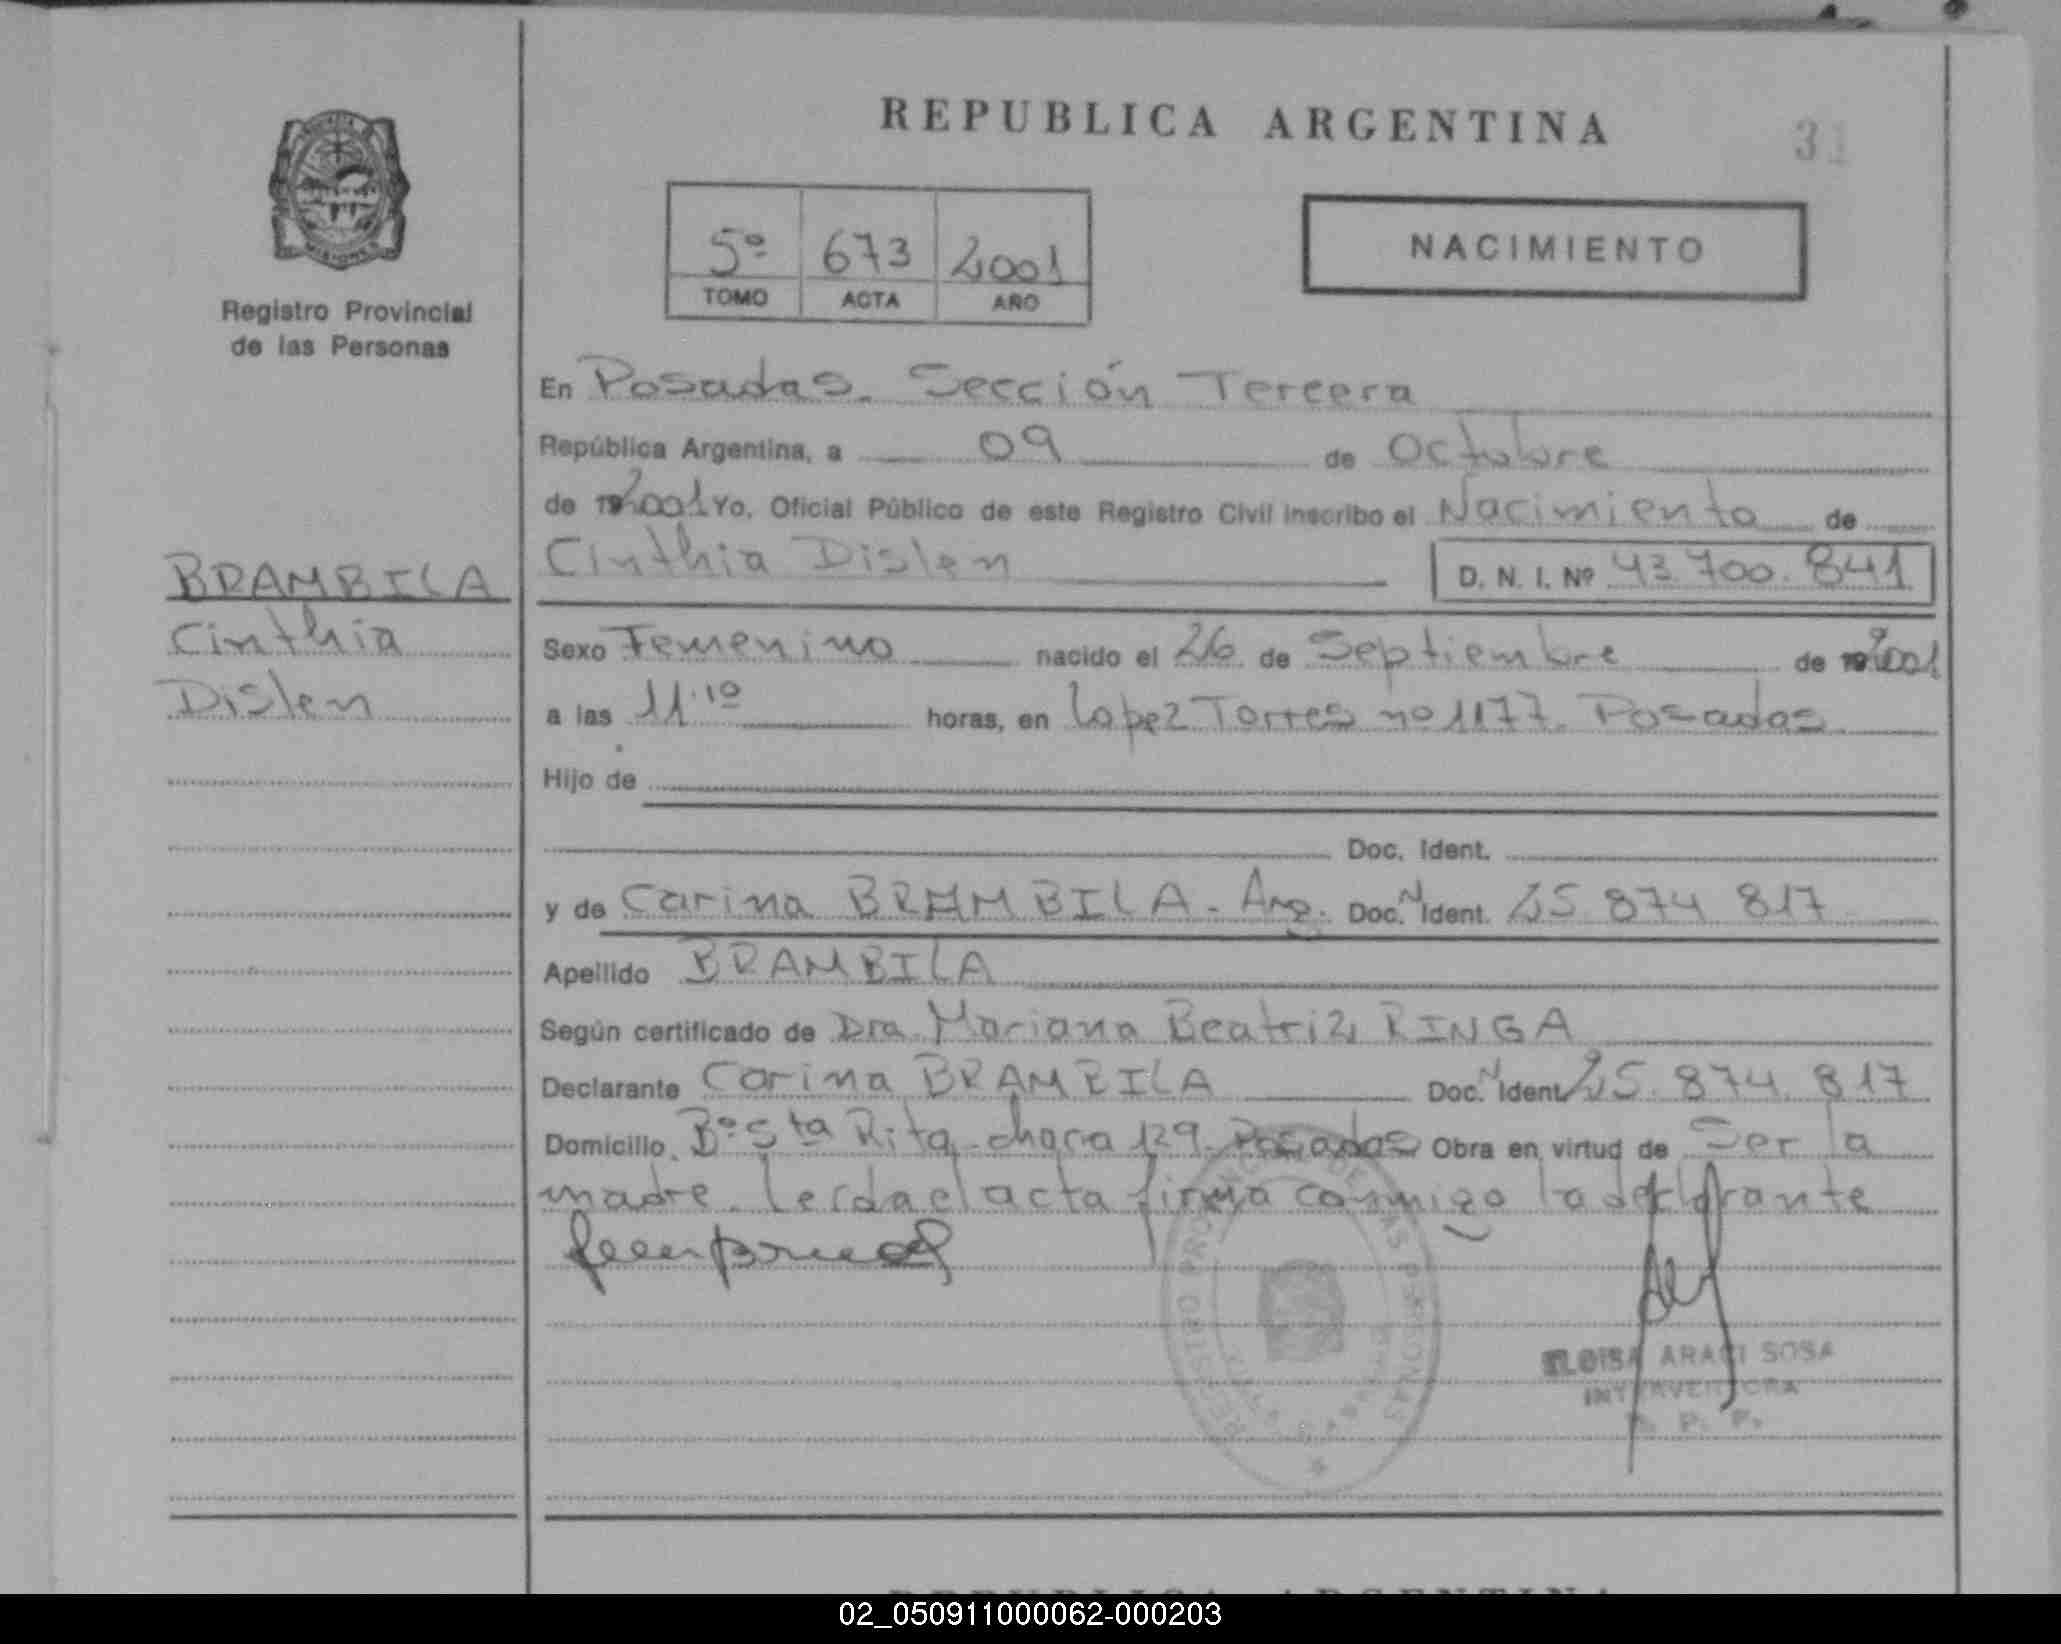 REPUBLICA ARGENTINA
31
Registro Provincial
de las Personas
5º 673 2001
TOMO ACTA AÑO
NACIMIENTO
En Posadas. Sección Tercera
República Argentina, a 09 de Octubre
de 2001 Yo, Oficial Público de este Registro Civil inscribo el Nacimiento de
Cinthia Dislen D. N. I. Nº 43.700.841
BRAMBILA
Cinthia
Dislen
Sexo Femenino nacido el 26 de Septiembre de 2001
a las 11.10 horas, en Lopez Torres nº 1177. Posadas
Hijo de
Doc. Ident.
y de Carina BRAMBILA - Arg. Doc. N Ident. 25.874.817
Apellido BRAMBILA
Según certificado de Dra. Mariana Beatriz RINGA
Declarante Carina BRAMBILA Doc. N Ident. 25.874.817
Domicilio Bº Sta Rita - chacra 129. Posadas Obra en virtud de Ser la
madre. Leída el acta firma conmigo la declarante
ELOISA ARACI SOSA
INTERVENTORA
R. P. P.
REPUBLICA ARGENTINA
02_050911000062-000203